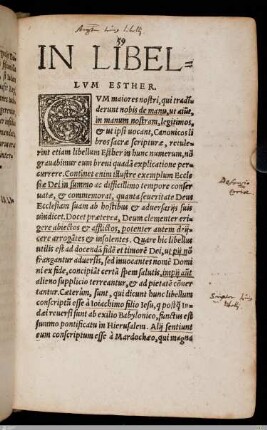 59
IN LIBEL=
LVM ESTHER.
CVM maiores nostri, qui tradi⸗
derunt nobis de manu, ut aiūt,
in manum nostram, legitimos,
& ut ipsi uocant, Canonicos li
bros sacræ scripturæ, retule⸗
rint etiam libellum Esther in hunc numerum, nō
grauabimur eum breui quadā explicatione percu
rrere. Continet enim illustre exemplum Eccle
siæ Dei in summo ac difficillimo tempore conser⸗
uatæ, & commemorat, quanta seueritate Deus
Ecclesiam suam ab hostibus & aduersarijs suis
uindicet. Docet præterea, Deum clementer eri⸗
gere abiectos & afflictos, potenter autem dij⸗
cere arrogātes & insolentes. Quare hic libellus
utilis est ad docendā fidē et timorē Dei, ut pij nō
frangantur aduersis, sed inuocantes nomē Domi
ni ex fide, concipiāt certā spem salutis, impij aūt
alieno supplicio terreantur, & ad pietatē cōuer
tantur. Cæterùm, sunt, qui dicunt hunc libellum
conscriptū esse à Ioiachimo filio Iesu, q postq̄ Iu
dæi reuersi sunt ab exilio Babylonico, functus est
summo pontificatu in Hierusalem. Alij sentiunt
eum conscriptum esse à Mardochæo, qui magna